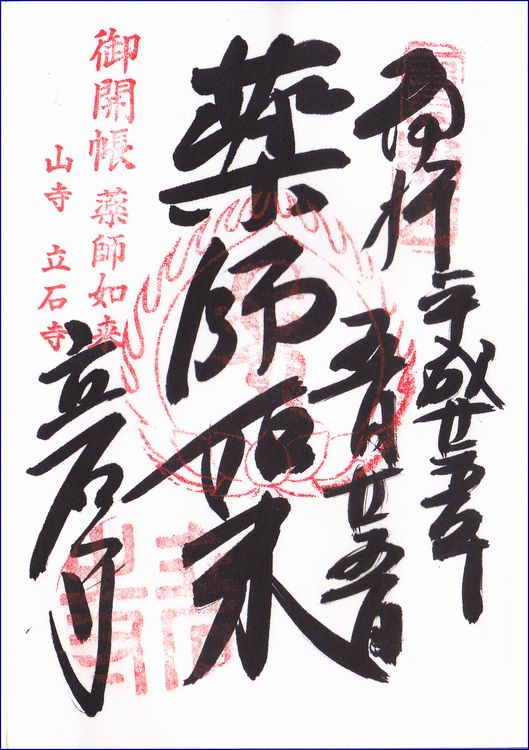 奉拝 平成廿五年
五月廿五日
薬師如来
立石寺
御開帳 薬師如来
山寺 立石寺